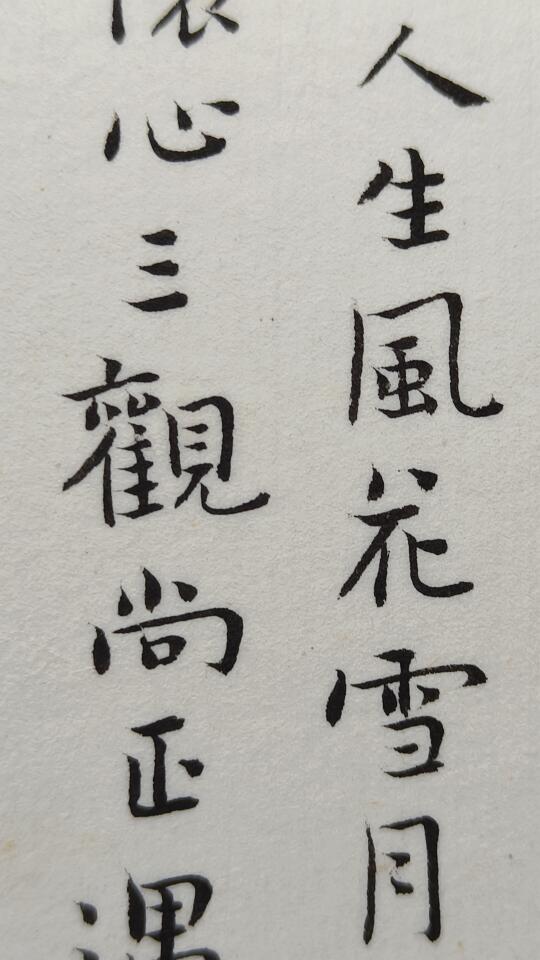 人生風花雪月
心三觀尚正遇